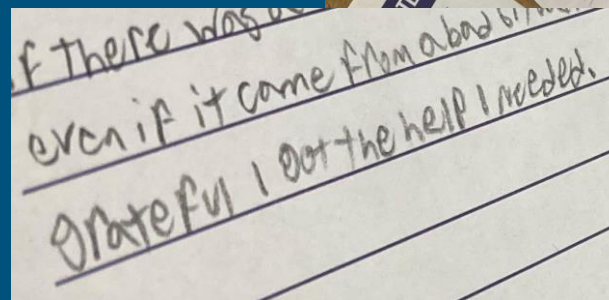 if there was
even if it came from a bad
grateful I got the help I needed.